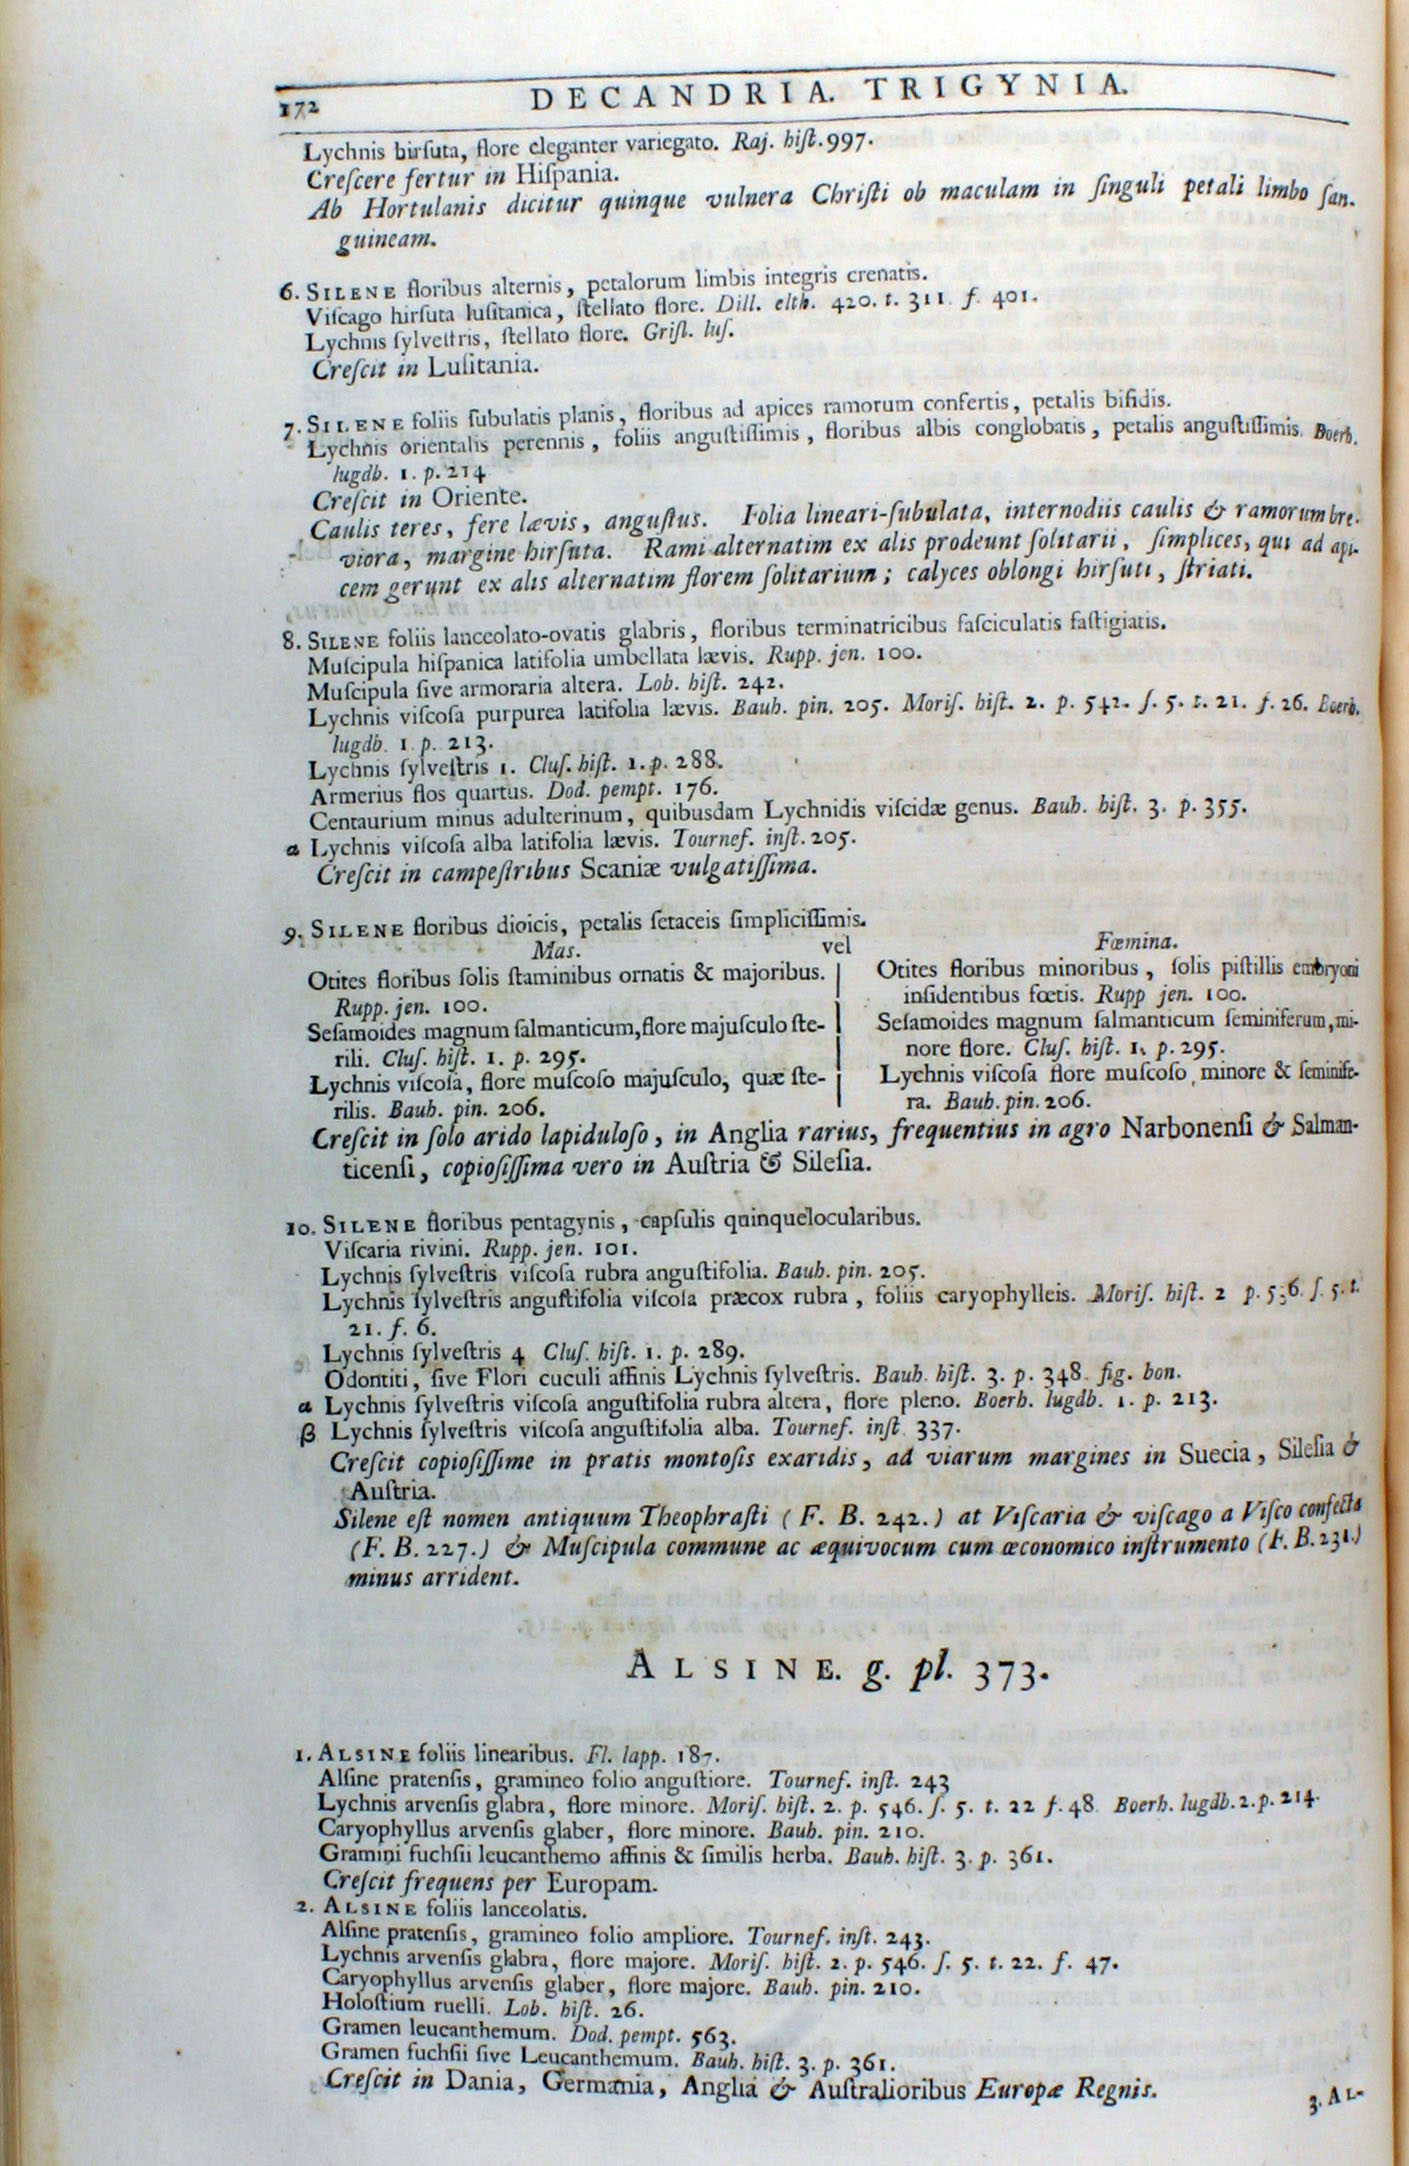 172 DECANDRIA. TRIGYNIA.
Lychnis hirſuta, flore eleganter variegato. Raj. hiſt. 997.
Creſcere fertur in Hiſpania.
Ab Hortulanis dicitur quinque vulnera Chriſti ob maculam in ſinguli petali limbo ſan-
guineam.
6. SILENE floribus alternis, petalorum limbis integris crenatis.
Viſcago hirſuta luſitanica, ſtellato flore. Dill. elth. 420. t. 311 f. 401.
Lychnis ſylveſtris, ſtellato flore. Griſl. luſ.
Creſcit in Luſitania.
7. SILENE foliis ſubulatis planis, floribus ad apices ramorum confertis, petalis bifidis.
Lychnis orientalis perennis, foliis anguſtiſſimis, floribus albis conglobatis, petalis anguſtiſſimis. Boerh.
lugdb. 1. p. 214
Creſcit in Oriente.
Caulis teres, fere lævis, anguſtus. Folia lineari-ſubulata, internodiis caulis & ramorum bre-
viora, margine hirſuta. Rami alternatim ex alis prodeunt ſolitarii, ſimplices, qui ad api-
cem gerunt ex alis alternatim florem ſolitarium; calyces oblongi hirſuti, ſtriati.
8. SILENE foliis lanceolato-ovatis glabris, floribus terminatricibus faſciculatis faſtigiatis.
Muſcipula hiſpanica latifolia umbellata lævis. Rupp. jen. 100.
Muſcipula ſive armoraria altera. Lob. hiſt. 242.
Lychnis viſcoſa purpurea latifolia lævis. Bauh. pin. 205. Moriſ. hiſt. 2. p. 542. ſ. 5. t. 21. f. 26. Boerh.
lugdb. 1 p. 213.
Lychnis ſylveſtris 1. Cluſ. hiſt. 1. p. 288.
Armerius flos quartus. Dod. pempt. 176.
Centaurium minus adulterinum, quibusdam Lychnidis viſcidæ genus. Bauh. hiſt. 3. p. 355.
α Lychnis viſcoſa alba latifolia lævis. Tournef. inſt. 205.
Creſcit in campeſtribus Scaniæ vulgatiſſima.
9. SILENE floribus dioicis, petalis ſetaceis ſimpliciſſimis.
Mas. vel Fœmina.
Otites floribus ſolis ſtaminibus ornatis & majoribus.
Rupp. jen. 100.
Seſamoides magnum ſalmanticum, flore majuſculo ſte-
rili. Cluſ. hiſt. 1. p. 295.
Lychnis viſcoſa, flore muſcoſo majuſculo, quæ ſte-
rilis. Bauh. pin. 206.
Otites floribus minoribus, ſolis piſtillis embryoni
inſidentibus fœtis. Rupp jen. 100.
Seſamoides magnum ſalmanticum ſeminiferum, mi-
nore flore. Cluſ. hiſt. 1. p. 295.
Lychnis viſcoſa flore muſcoſo, minore & ſeminife-
ra. Bauh. pin. 206.
Creſcit in ſolo arido lapiduloſo, in Anglia rarius, frequentius in agro Narbonenſi & Salman-
ticenſi, copioſiſſima vero in Auſtria & Sileſia.
10. SILENE floribus pentagynis, capſulis quinquelocularibus.
Viſcaria rivini. Rupp. jen. 101.
Lychnis ſylveſtris viſcoſa rubra anguſtifolia. Bauh. pin. 205.
Lychnis ſylveſtris anguſtifolia viſcoſa præcox rubra, foliis caryophylleis. Moriſ. hiſt. 2 p. 536. ſ. 5. t.
21. f. 6.
Lychnis ſylveſtris 4 Cluſ. hiſt. 1. p. 289.
Odontiti, ſive Flori cuculi affinis Lychnis ſylveſtris. Bauh. hiſt. 3. p. 348. fig. bon.
α Lychnis ſylveſtris viſcoſa anguſtifolia rubra altera, flore pleno. Boerh. lugdb. 1. p. 213.
β Lychnis ſylveſtris viſcoſa anguſtifolia alba. Tournef. inſt 337.
Creſcit copioſiſſime in pratis montoſis exaridis, ad viarum margines in Suecia, Sileſia &
Auſtria.
Silene eſt nomen antiquum Theophraſti (F. B. 242.) at Viſcaria & viſcago a Viſco confecta
(F. B. 227.) & Muſcipula commune ac æquivocum cum œconomico inſtrumento (F. B. 231.)
minus arrident.
ALSINE. g. pl. 373.
1. ALSINE foliis linearibus. Fl. lapp. 187.
Alſine pratenſis, gramineo folio anguſtiore. Tournef. inſt. 243
Lychnis arvenſis glabra, flore minore. Moriſ. hiſt. 2. p. 546. ſ. 5. t. 22 f. 48. Boerh. lugdb. 2. p. 214.
Caryophyllus arvenſis glaber, flore minore. Bauh. pin. 210.
Gramini fuchſii leucanthemo affinis & ſimilis herba. Bauh. hiſt. 3. p. 361.
Creſcit frequens per Europam.
2. ALSINE foliis lanceolatis.
Alſine pratenſis, gramineo folio ampliore. Tournef. inſt. 243.
Lychnis arvenſis glabra, flore majore. Moriſ. hiſt. 2. p. 546. ſ. 5. t. 22. f. 47.
Caryophyllus arvenſis glaber, flore majore. Bauh. pin. 210.
Holoſtium ruelli. Lob. hiſt. 26.
Gramen leucanthemum. Dod. pempt. 563.
Gramen fuchſii ſive Leucanthemum. Bauh. hiſt. 3. p. 361.
Creſcit in Dania, Germania, Anglia & Auſtralioribus Europæ Regnis.
3. AL-